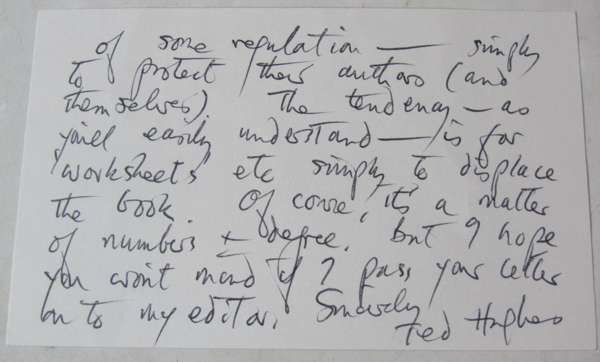 of some regulation — simply
to protect their authors (and
themselves). The tendency — as
you'll easily understand — is for
worksheets etc simply to displace
the book. Of course, it's a matter
of numbers + degree. But I hope
you won't mind if I pass your letter
on to my editor. Sincerely
Ted Hughes